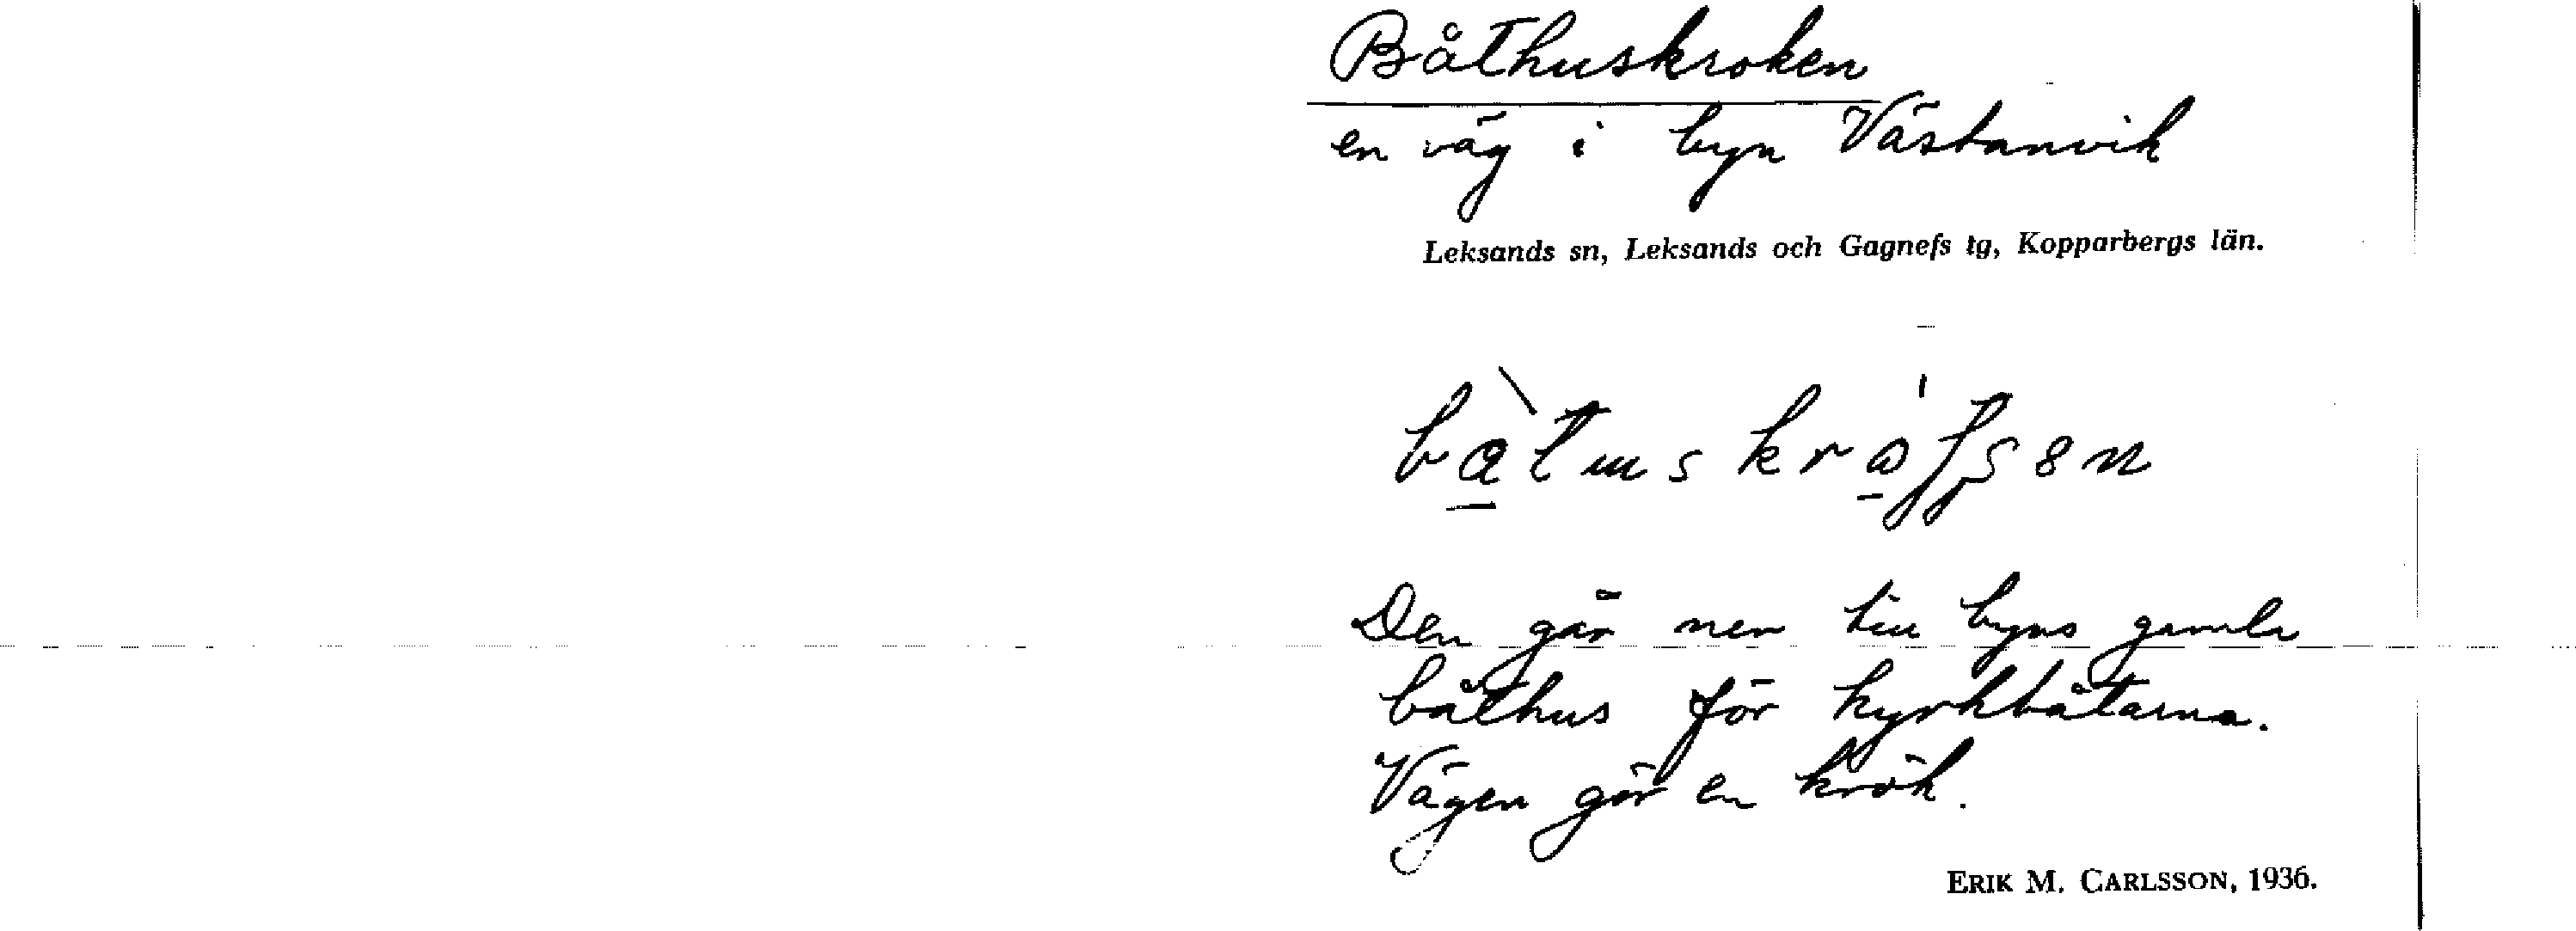 Båthuskroken
en väg i byn Västanvik
Leksands sn, Leksands och Gagnefs tg, Kopparbergs län.
Den går ner till byns gamla
båthus för kyrkbåtarna.
Vägen gör en krök.
ERIK M. CARLSSON, 1936.